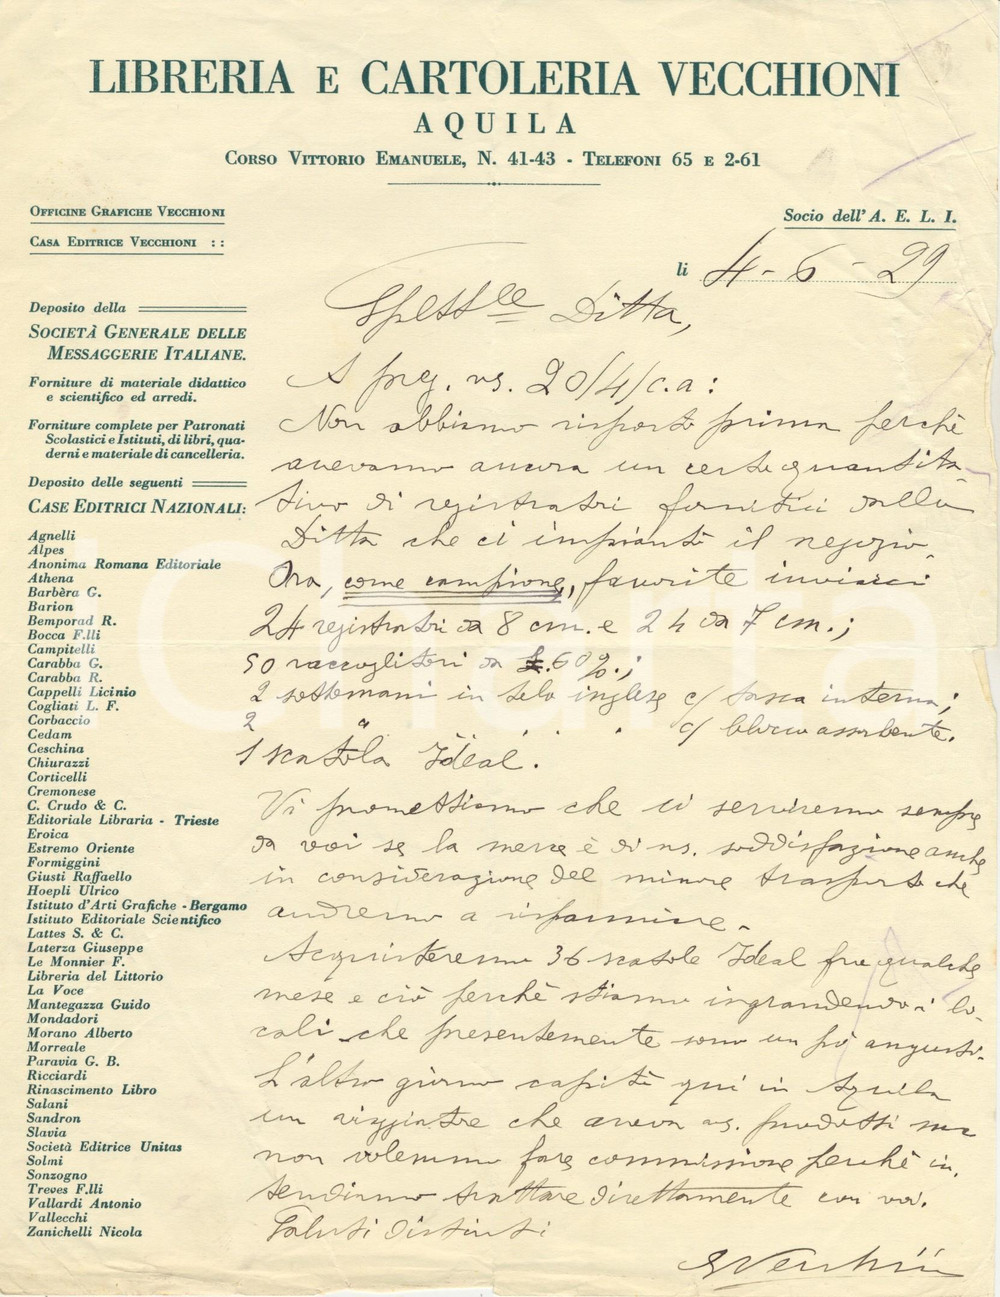 LIBRERIA E CARTOLERIA VECCHIONI
AQUILA
CORSO VITTORIO EMANUELE, N. 41-43 - TELEFONI 65 E 2-61
OFFICINE GRAFICHE VECCHIONI
CASA EDITRICE VECCHIONI ::
Socio dell'A. E. L. I.
li 4-6-29
Deposito della
SOCIETÀ GENERALE DELLE
MESSAGGERIE ITALIANE.
Forniture di materiale didattico
e scientifico ed arredi.
Forniture complete per Patronati
Scolastici e Istituti, di libri, qua-
derni e materiale di cancelleria.
Deposito delle seguenti
CASE EDITRICI NAZIONALI:
Agnelli
Alpes
Anonima Romana Editoriale
Athena
Barbèra G.
Barion
Bemporad R.
Bocca F.lli
Campitelli
Carabba G.
Carabba R.
Cappelli Licinio
Cogliati L. F.
Corbaccio
Cedam
Ceschina
Chiurazzi
Corticelli
Cremonese
C. Crudo & C.
Editoriale Libraria - Trieste
Eroica
Estremo Oriente
Formiggini
Giusti Raffaello
Hoepli Ulrico
Istituto d'Arti Grafiche - Bergamo
Istituto Editoriale Scientifico
Lattes S. & C.
Laterza Giuseppe
Le Monnier F.
Libreria del Littorio
La Voce
Mantegazza Guido
Mondadori
Morano Alberto
Morreale
Paravia G. B.
Ricciardi
Rinascimento Libro
Salani
Sandron
Slavia
Società Editrice Unitas
Solmi
Sonzogno
Treves F.lli
Vallardi Antonio
Vallecchi
Zanichelli Nicola
Spett.le Ditta,
A preg. vs. 20/4/c.a:
Non abbiamo risposto prima perchè
avevamo ancora un certo quantita-
tivo di registratri forniti dalla
Ditta che ci impiantò il negozio.
Ora, come campione, favorite inviarci
24 registratri da 8 cm. e 24 da 7 cm.;
50 raccoglitori da £.60%.;
2 sottomani in tela inglese c/ tasca interna;
2 " . . . c/ blocco assorbente.
1 scatola Ideal.
Vi promettiamo che ci serviremo sempre
da voi se la merce è di ns. soddisfazione anche
in considerazione del minore trasporto che
andremo a risparmiare.
Acquisteremo 36 scatole Ideal fra qualche
mese e ciò perchè stiamo ingrandendo i lo-
cali che presentemente sono un pò angusti.
L'altro giorno capitò qui in Aquila
un viaggiatore che aveva vs. prodotti ma
non volemmo fare commissione perchè in-
tendiamo trattare direttamente con voi.
Saluti distinti
Vecchioni
Charta